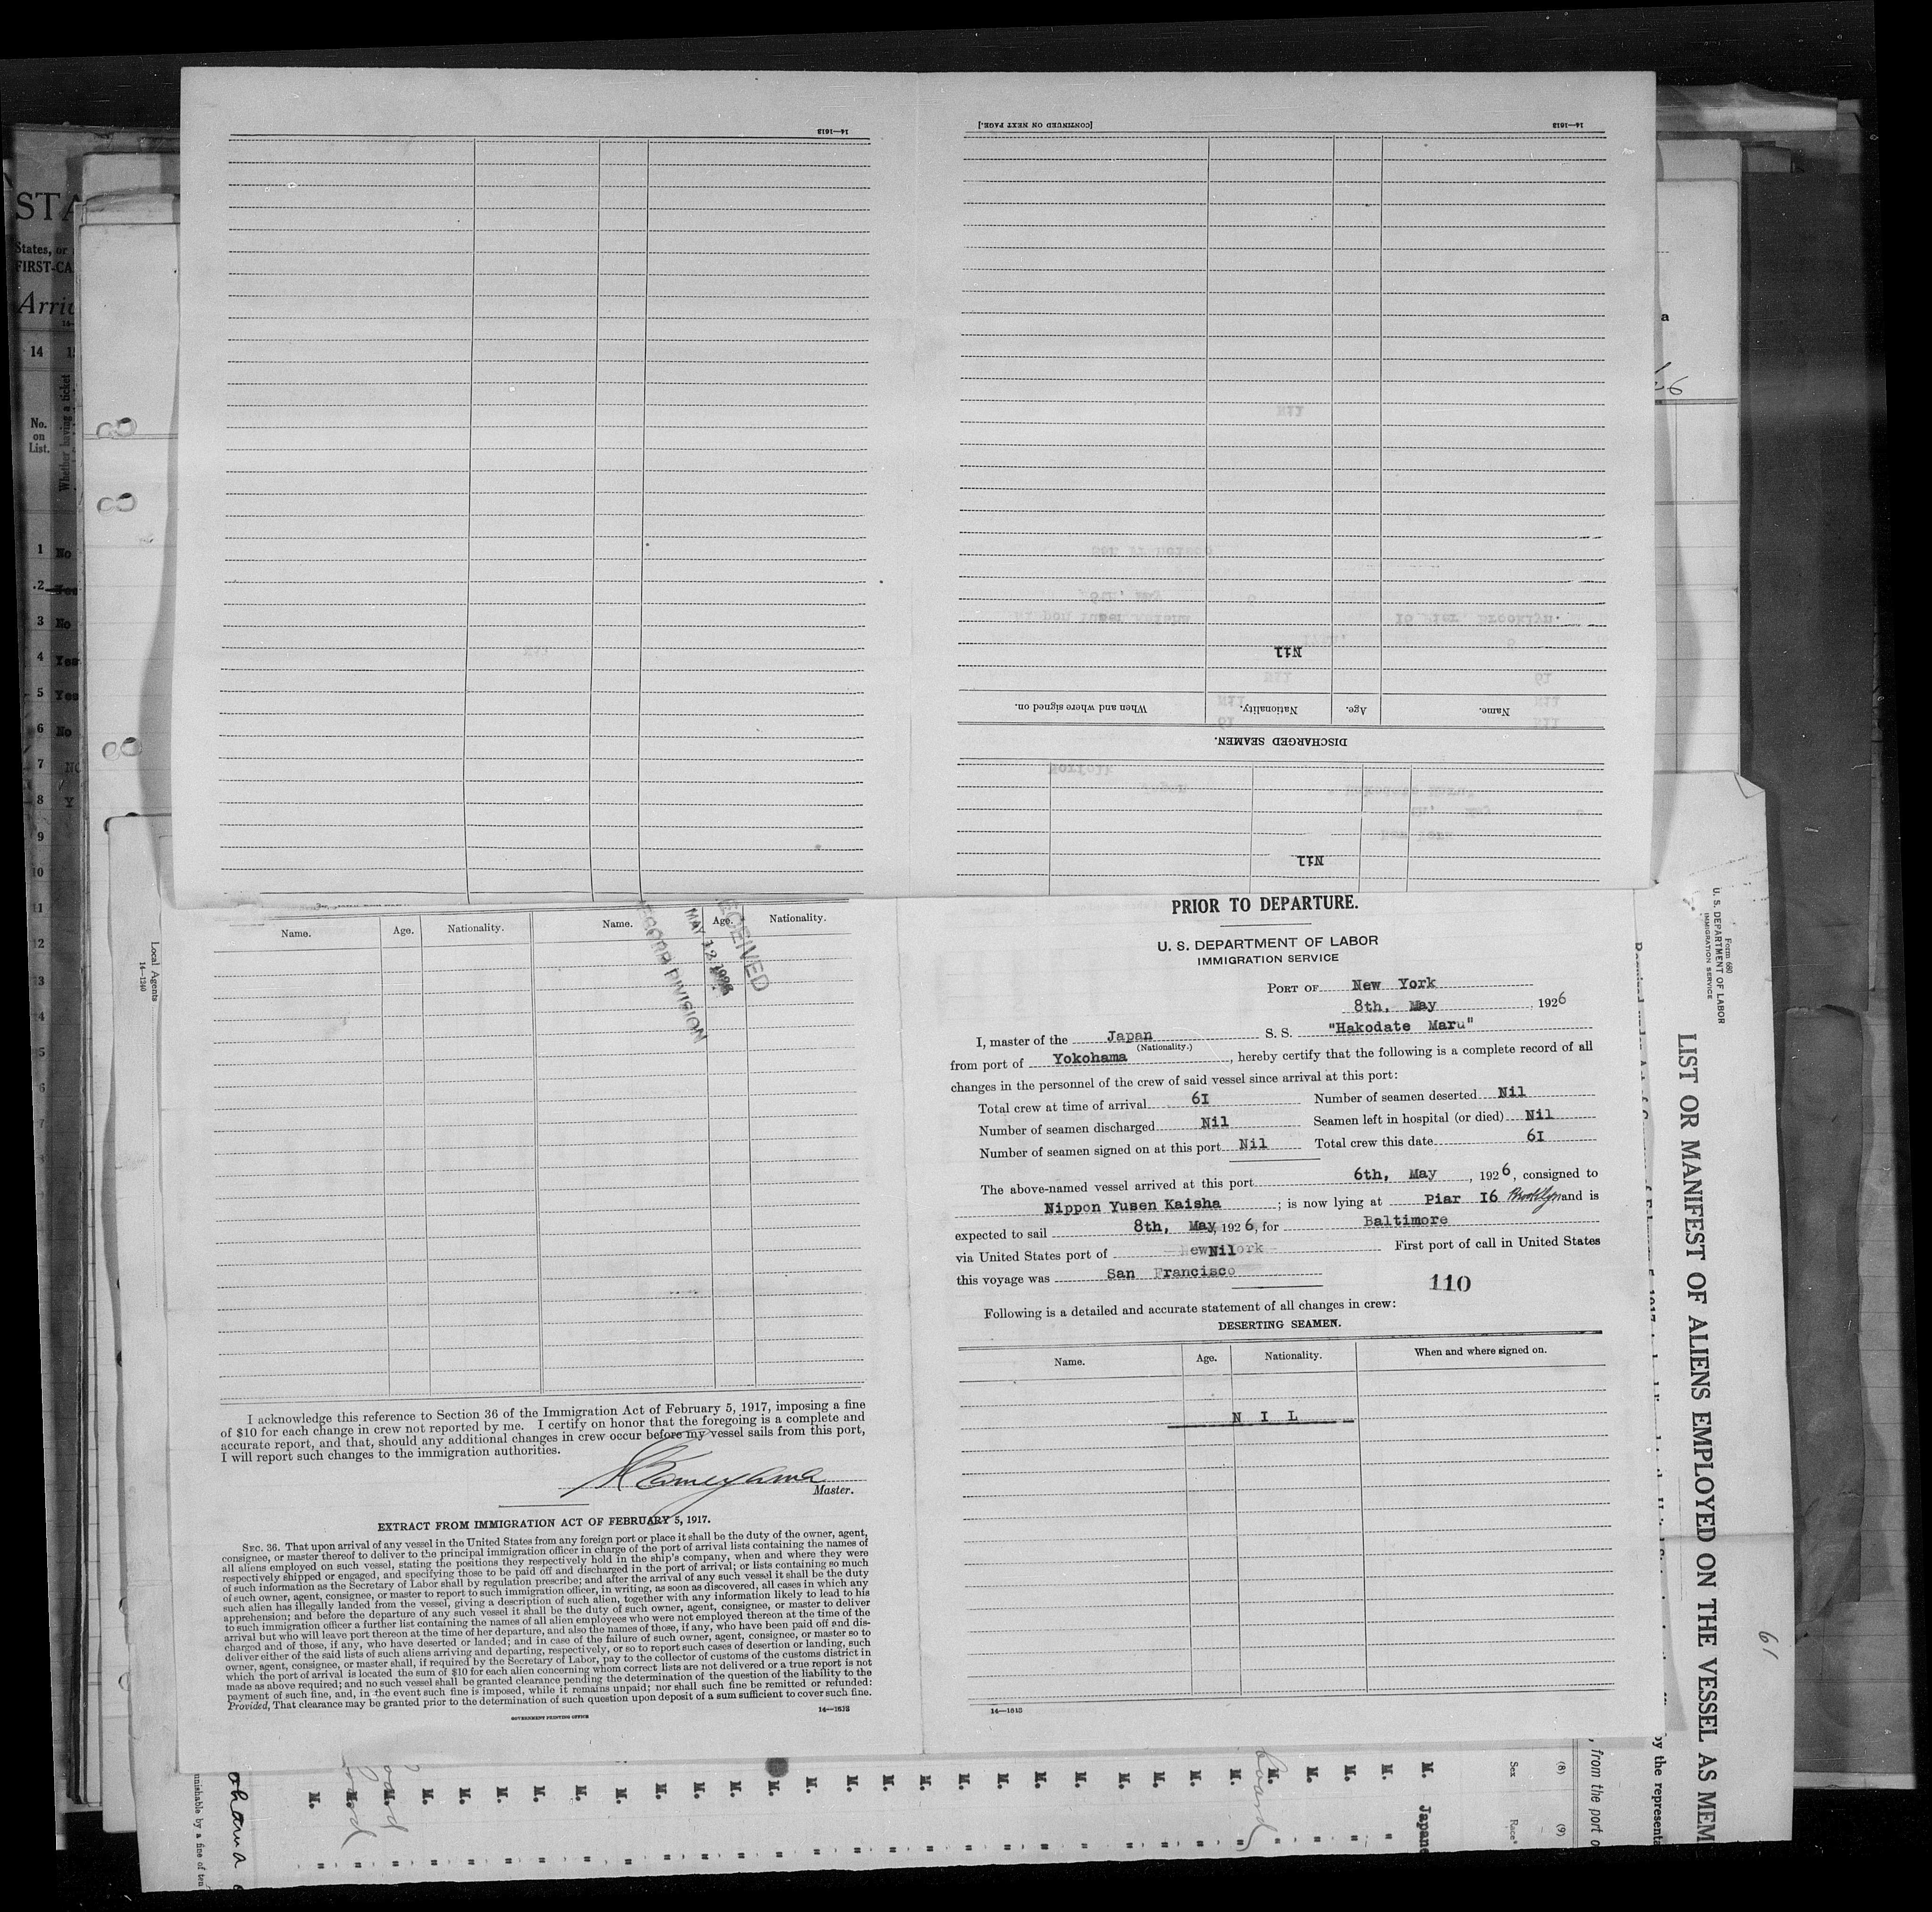 14—1613
[CONTINUED ON NEXT PAGE.]
14—1613
Nil
Name.
Age.
Nationality.
When and where signed on.
DISCHARGED SEAMEN.
Nil
STA
States, or
FIRST-CA
Arri
14
No.
on
List.
Whether having a ticket
1 No
2 Yes
3 No
4 Yes
5 Yes
6 No
7 No
8 Y
9
10
11
12
Name.
Age.
Nationality.
Name.
Age.
Nationality.
RECEIVED
MAY 12 1926
RECORD DIVISION
Local Agents
14—1240
I acknowledge this reference to Section 36 of the Immigration Act of February 5, 1917, imposing a fine
of $10 for each change in crew not reported by me. I certify on honor that the foregoing is a complete and
accurate report, and that, should any additional changes in crew occur before my vessel sails from this port,
I will report such changes to the immigration authorities.
Master.
EXTRACT FROM IMMIGRATION ACT OF FEBRUARY 5, 1917.
SEC. 36. That upon arrival of any vessel in the United States from any foreign port or place it shall be the duty of the owner, agent,
consignee, or master thereof to deliver to the principal immigration officer in charge of the port of arrival lists containing the names of
all aliens employed on such vessel, stating the positions they respectively hold in the ship's company, when and where they were
respectively shipped or engaged, and specifying those to be paid off and discharged in the port of arrival; or lists containing so much
of such information as the Secretary of Labor shall by regulation prescribe; and after the arrival of any such vessel it shall be the duty
of such owner, agent, consignee, or master to report to such immigration officer, in writing, as soon as discovered, all cases in which any
such alien has illegally landed from the vessel, giving a description of such alien, together with any information likely to lead to his
apprehension; and before the departure of any such vessel it shall be the duty of such owner, agent, consignee, or master to deliver
to such immigration officer a further list containing the names of all alien employees who were not employed thereon at the time of the
arrival but who will leave port thereon at the time of her departure, and also the names of those, if any, who have been paid off and dis-
charged and of those, if any, who have deserted or landed; and in case of the failure of such owner, agent, consignee, or master so to
deliver either of the said lists of such aliens arriving and departing, respectively, or so to report such cases of desertion or landing, such
owner, agent, consignee, or master shall, if required by the Secretary of Labor, pay to the collector of customs of the customs district in
which the port of arrival is located the sum of $10 for each alien concerning whom correct lists are not delivered or a true report is not
made as above required; and no such vessel shall be granted clearance pending the determination of the question of the liability to the
payment of such fine, and, in the event such fine is imposed, while it remains unpaid; nor shall such fine be remitted or refunded:
Provided, That clearance may be granted prior to the determination of such question upon deposit of a sum sufficient to cover such fine.
GOVERNMENT PRINTING OFFICE
14—1613
PRIOR TO DEPARTURE.
U. S. DEPARTMENT OF LABOR
IMMIGRATION SERVICE
PORT OF New York
8th, May, 1926
I, master of the Japan S. S. "Hakodate Maru"
(Nationality.)
from port of Yokohama, hereby certify that the following is a complete record of all
changes in the personnel of the crew of said vessel since arrival at this port:
Total crew at time of arrival 6I Number of seamen deserted Nil
Number of seamen discharged Nil Seamen left in hospital (or died) Nil
Number of seamen signed on at this port Nil Total crew this date 6I
The above-named vessel arrived at this port 6th, May, 1926, consigned to
Nippon Yusen Kaisha; is now lying at Piar I6 Brooklyn and is
expected to sail 8th, May, 1926, for Baltimore
via United States port of Nil First port of call in United States
this voyage was San Francisco
110
Following is a detailed and accurate statement of all changes in crew:
DESERTING SEAMEN.
Name.
Age.
Nationality.
When and where signed on.
N I L
14—1613
Form 680
U. S. DEPARTMENT OF LABOR
IMMIGRATION SERVICE
LIST OR MANIFEST OF ALIENS EMPLOYED ON THE VESSEL AS MEM
61
by the representa
, from the port o
(8)
Sex
(9)
Race
M. Japane
M.
ohama
unishable by a fine of ten